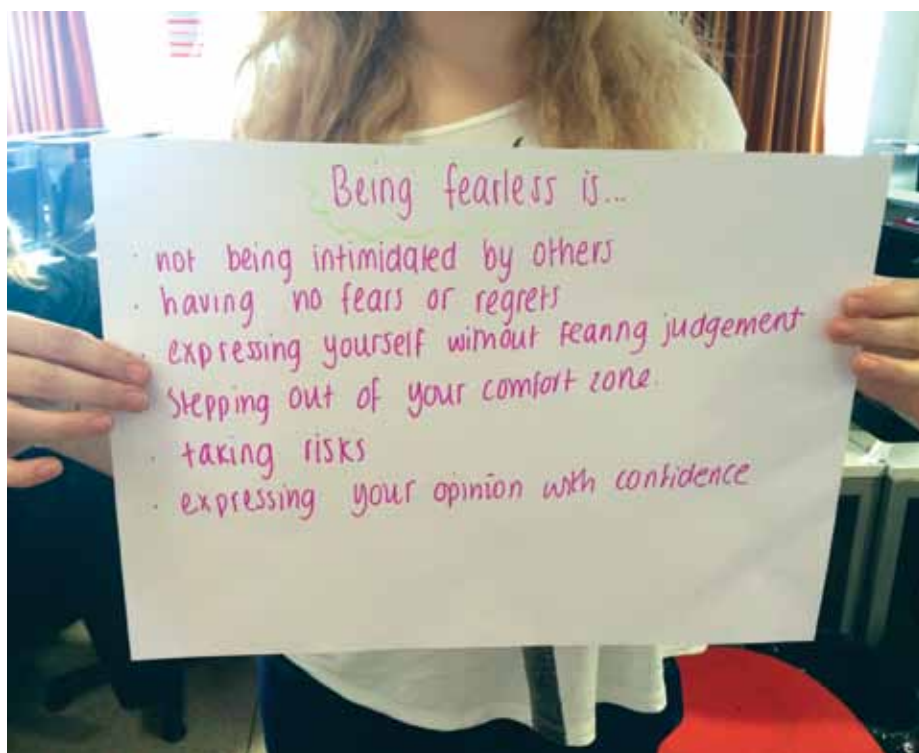 Being fearless is...
· not being intimidated by others
· having no fears or regrets
· expressing yourself without fearing judgement
· Stepping out of your comfort zone.
· taking risks
· expressing your opinion with confidence